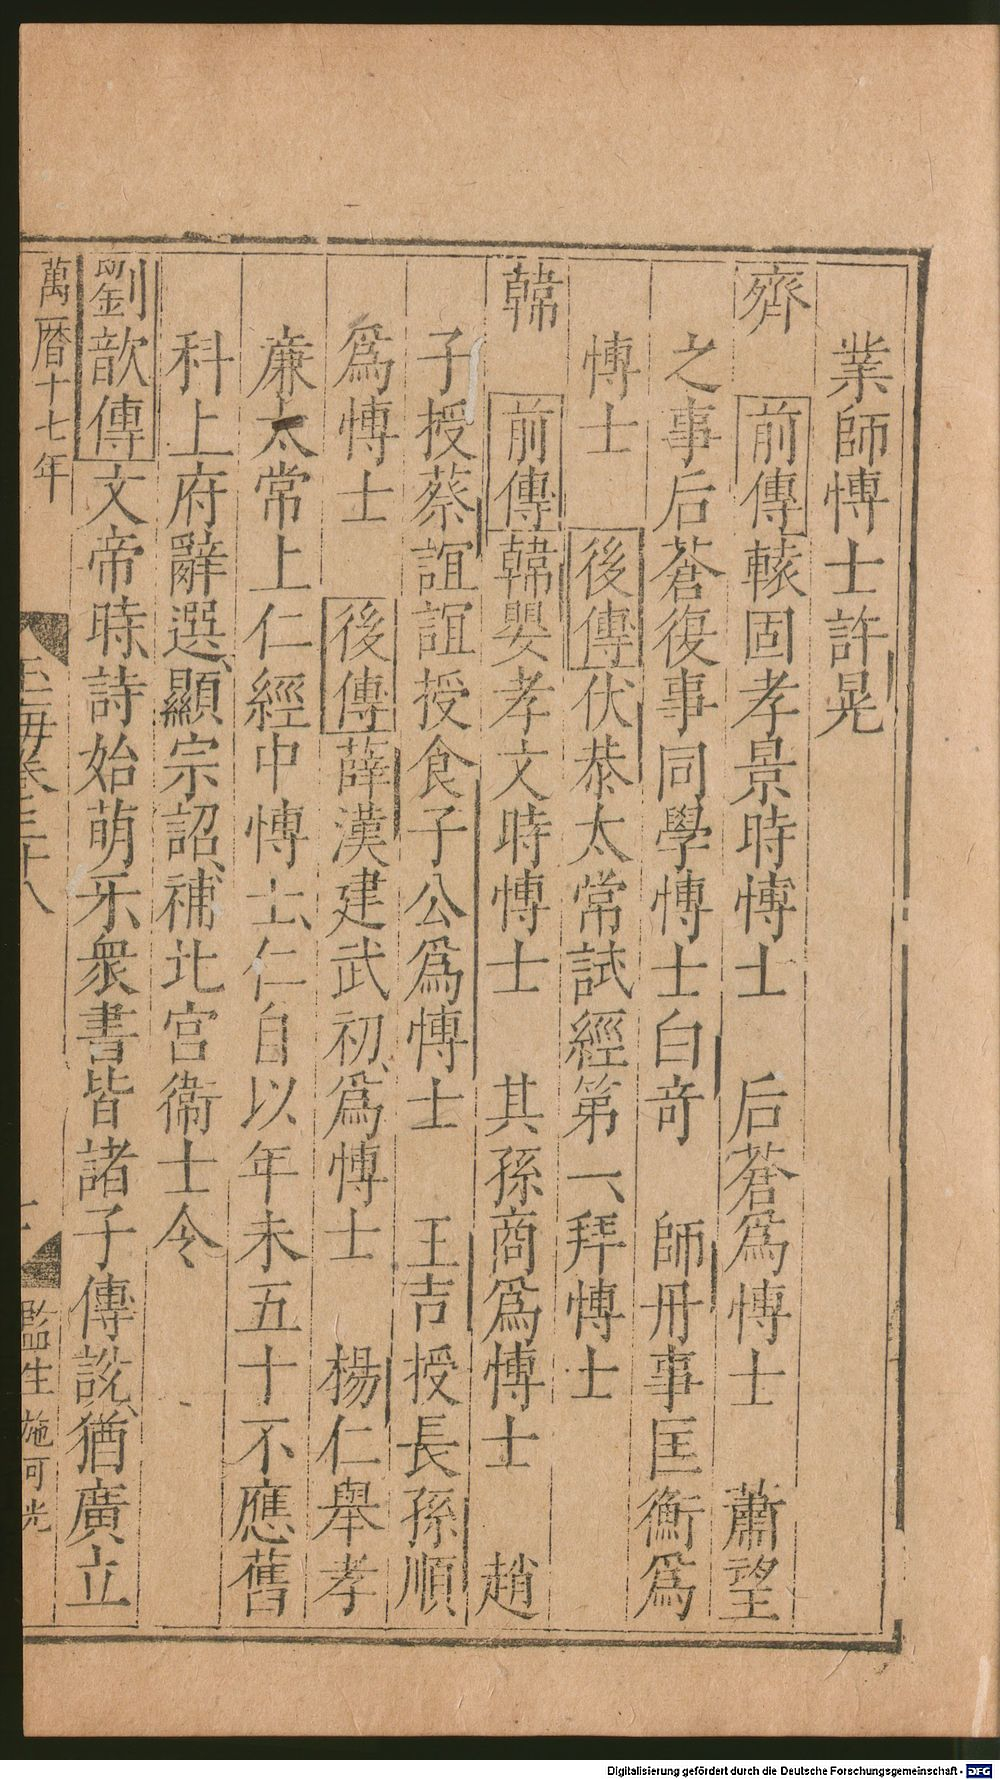 業師博士許晃
齊 前傳轅固孝景時博士 后蒼爲博士 蕭望
之事后蒼復事同學博士白奇 師丹事匡衡爲
博士 後傳伏恭太常試經第一拜博士
韓 前傳韓嬰孝文時博士 其孫商爲博士 趙
子授蔡誼誼授食子公爲博士 王吉授長孫順
爲博士 後傳薛漢建武初爲博士 楊仁舉孝
廉太常上仁經中博士仁自以年未五十不應舊
科上府辭選顯宗詔補北宮衞士令
劉歆傳文帝時詩始萌牙衆書皆諸子傳說猶廣立
萬曆十七年
玉海卷三十八
監生 施可光
Digitalisierung gefördert durch die Deutsche Forschungsgemeinschaft - DFG